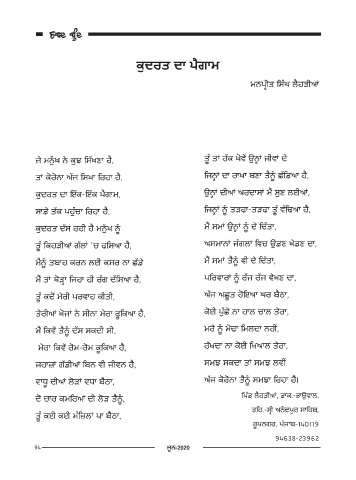 ਕੁਦਰਤ ਦਾ ਪੈਗਾਮ
ਮਨਪ੍ਰੀਤ ਸਿੰਘ ਲੈਹੜੀਆਂ
ਜੇ ਮਨੁੱਖ ਨੇ ਕੁਝ ਸਿੱਖਣਾ ਹੈ,
ਤਾਂ ਕੋਰੋਨਾ ਅੱਜ ਸਿਖਾ ਰਿਹਾ ਹੈ,
ਕੁਦਰਤ ਦਾ ਇੱਕ-ਇੱਕ ਪੈਗਾਮ,
ਸਾਡੇ ਤੱਕ ਪਹੁੰਚਾ ਰਿਹਾ ਹੈ,
ਕੁਦਰਤ ਦੱਸ ਰਹੀ ਹੈ ਮਨੁੱਖ ਨੂੰ
ਤੂੰ ਕਿਹੜੀਆਂ ਗੱਲਾਂ 'ਚ ਫਸਿਆ ਹੈ,
ਮੈਨੂੰ ਤਬਾਹ ਕਰਨ ਲਈ ਕਸਰ ਨਾ ਛੱਡੇ
ਮੈਂ ਤਾਂ ਥੋੜ੍ਹਾ ਜਿਹਾ ਹੀ ਰੰਗ ਦੱਸਿਆ ਹੈ,
ਤੂੰ ਕਦੋਂ ਮੇਰੀ ਪਰਵਾਹ ਕੀਤੀ,
ਤੇਰੀਆਂ ਖੋਜਾਂ ਨੇ ਸੀਨਾ ਮੇਰਾ ਫੂਕਿਆ ਹੈ,
ਮੈਂ ਕਿਵੇਂ ਤੈਨੂੰ ਦੱਸ ਸਕਦੀ ਸੀ,
ਮੇਰਾ ਕਿਵੇਂ ਰੋਮ-ਰੋਮ ਕੂਕਿਆ ਹੈ,
ਜਹਾਜ਼ਾਂ ਗੱਡੀਆਂ ਬਿਨ ਵੀ ਜੀਵਨ ਹੈ,
ਵਾਧੂ ਦੀਆਂ ਲੋੜਾਂ ਵਧਾ ਬੈਠਾ,
ਦੋ ਚਾਰ ਕਮਰਿਆਂ ਦੀ ਲੋੜ ਤੈਨੂੰ,
ਤੂੰ ਕਈ ਕਈ ਮੰਜ਼ਿਲਾਂ ਪਾ ਬੈਠਾ,
ਤੂੰ ਤਾਂ ਹੱਕ ਖੋਵੇਂ ਉਨ੍ਹਾਂ ਜੀਵਾਂ ਦੇ
ਜਿਨ੍ਹਾਂ ਦਾ ਰਾਖਾ ਬਣਾ ਤੈਨੂੰ ਛੱਡਿਆ ਹੈ,
ਉਨ੍ਹਾਂ ਦੀਆਂ ਅਰਦਾਸਾਂ ਮੈਂ ਸੁਣ ਲਈਆਂ,
ਜਿਨ੍ਹਾਂ ਨੂੰ ਤੜਫਾ-ਤੜਫਾ ਤੂੰ ਵੱਢਿਆ ਹੈ,
ਮੈਂ ਸਮਾਂ ਉਨ੍ਹਾਂ ਨੂੰ ਦੇ ਦਿੱਤਾ,
ਅਸਮਾਨਾਂ ਜੰਗਲਾਂ ਵਿਚ ਉਡਣ ਖੇਡਣ ਦਾ,
ਮੈਂ ਸਮਾਂ ਤੈਨੂੰ ਵੀ ਦੇ ਦਿੱਤਾ,
ਪਰਿਵਾਰਾਂ ਨੂੰ ਰੱਜ ਰੱਜ ਵੇਖਣ ਦਾ,
ਅੱਜ ਅਛੂਤ ਹੋਇਆ ਘਰ ਬੈਠਾ,
ਕੋਈ ਪੁੱਛੇ ਨਾ ਹਾਲ ਚਾਲ ਤੇਰਾ,
ਮਰੇ ਨੂੰ ਮੋਢਾ ਮਿਲਦਾ ਨਹੀਂ,
ਰੱਖਦਾ ਨਾ ਕੋਈ ਖਿਆਲ ਤੇਰਾ,
ਸਮਝ ਸਕਦਾ ਤਾਂ ਸਮਝ ਲਵੀਂ
ਅੱਜ ਕੋਰੋਨਾ ਤੈਨੂੰ ਸਮਝਾ ਰਿਹਾ ਹੈ।
ਪਿੰਡ ਲੈਹੜੀਆਂ, ਡਾਕ.-ਭਾਉਵਾਲ,
ਤਹਿ.-ਸ੍ਰੀ ਅਨੰਦਪੁਰ ਸਾਹਿਬ,
ਰੂਪਨਗਰ, ਪੰਜਾਬ-140119
94638-23962
੧੮ ਜੂਨ-2020